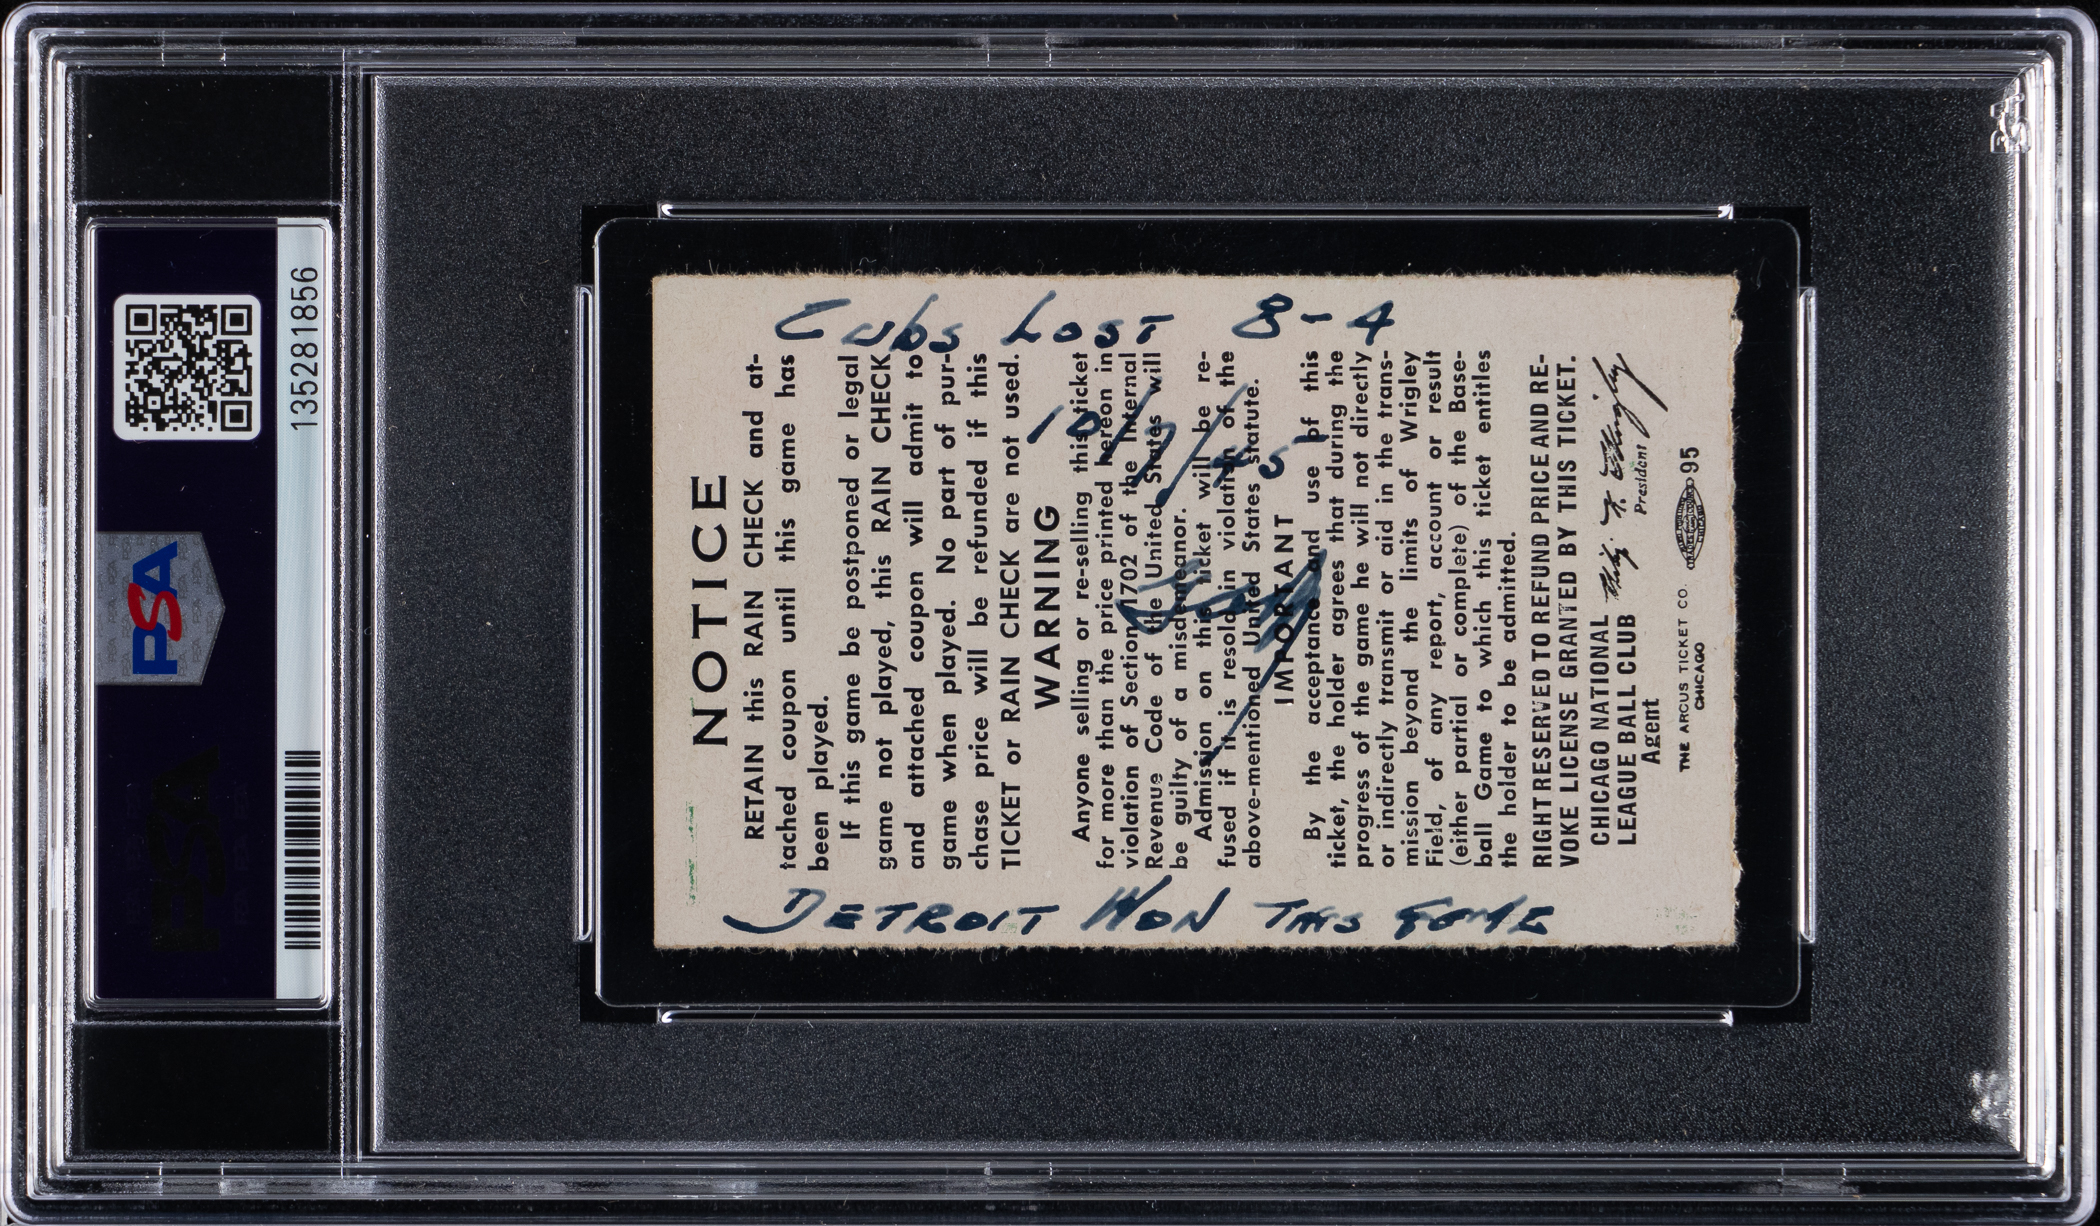 135281856
PSA
NOTICE
RETAIN this RAIN CHECK and at-
tached coupon until this game has
been played.
If this game be postponed or legal
game not played, this RAIN CHECK
and attached coupon will admit to
game when played. No part of pur-
chase price will be refunded if this
TICKET or RAIN CHECK are not used.
WARNING
Anyone selling or re-selling this ticket
for more than the price printed hereon in
violation of Section 1702 of the Internal
Revenue Code of the United States will
be guilty of a misdemeanor.
Admission on this ticket will be re-
fused if it is resold in violation of the
above-mentioned United States statute.
IMPORTANT
By the acceptance and use of this
ticket, the holder agrees that during the
progress of the game he will not directly
or indirectly transmit or aid in the trans-
mission beyond the limits of Wrigley
Field, of any report, account or result
(either partial or complete) of the Base-
ball Game to which this ticket entitles
the holder to be admitted.
RIGHT RESERVED TO REFUND PRICE AND RE-
VOKE LICENSE GRANTED BY THIS TICKET.
CHICAGO NATIONAL
LEAGUE BALL CLUB
Agent
Philip K. Wrigley
President
THE ARCUS TICKET CO.
CHICAGO
95
Cubs LOST 8-4
10/7/45
DETROIT WON THIS GAME